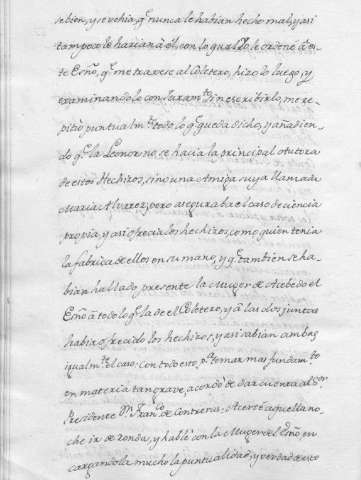 se bien, y se vehia, qe. nunca le habian hecho mal, y asi
tampoco le harian à él, con lo qual Yo le ordené à es-
te Esño, qe. me traxese al Coletero, hizolo luego, y
examinandole con Juramto. sin escribirlo, me re-
pitiò puntualmte. todo lo qe. queda dicho, y añadien-
do qe. la Leonor no se hacia la principal autora
de estos Hechizos, sino una Amiga suya llamada
Maria Alvarez; pero aseguraba el caso de ciencia
propria, y asi ofrecia los hechizos, como quien tenia
la fabrica de ellos en su mano, y qe. tambien se ha-
bian hallado presente la Muger de Acebedo el
Esño à todo lo qe. la de el Coletero, y à las dos juntas
habia ofrecido los hechizos, y asi sabian ambas
igualmte. el caso: con todo esto, pa. tomar mas fundamto.
en materia tan grave, acordè de dar cuenta al Sor.
Presidente Dn. Franco. de Contreras, Acevedo aquella no-
che ir de ronda, y hablè con la Muger del Esño en
cargandola mucho la puntualidad, y verdad de esto